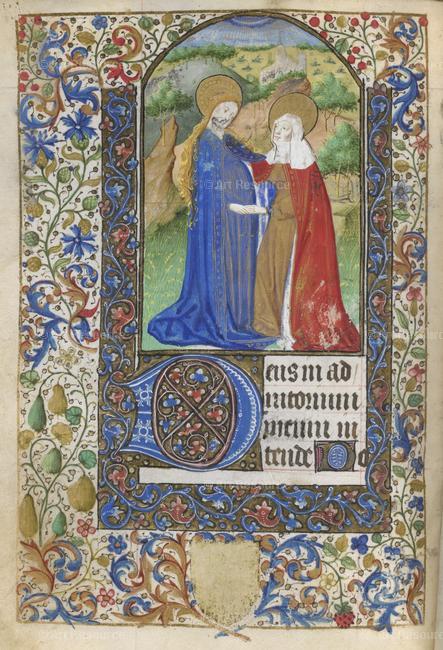 © Art Resource
eus in ad
iutorium
meum in
tende Do